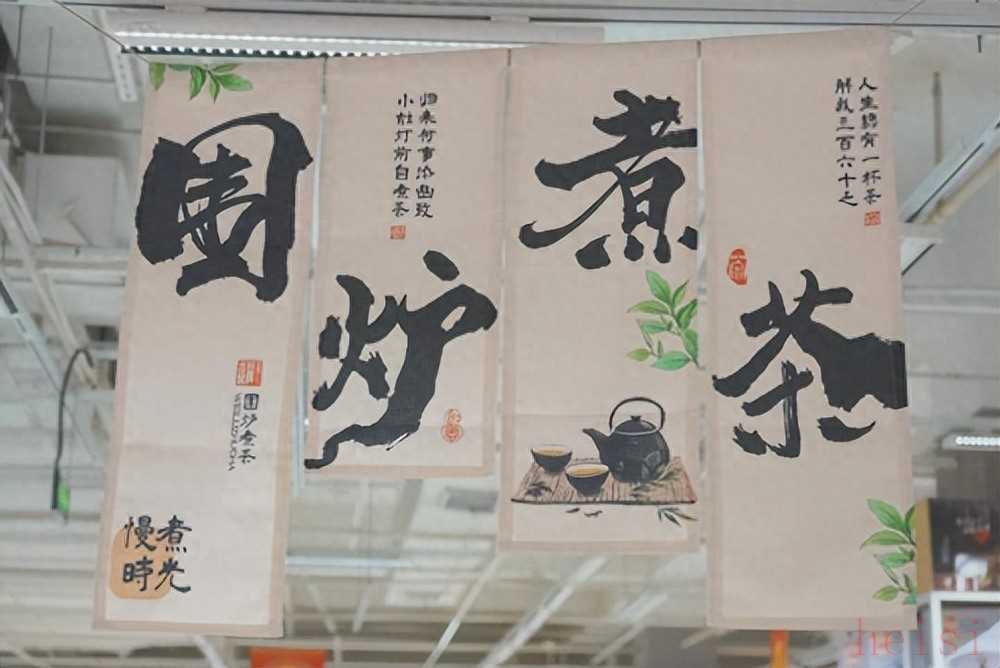 圍
圍炉煮茶
慢煮
時光
炉
归来何事添幽致
小灶灯前自煮茶
煮
茶
人生總有一杯茶
解三百六十乏
helsi